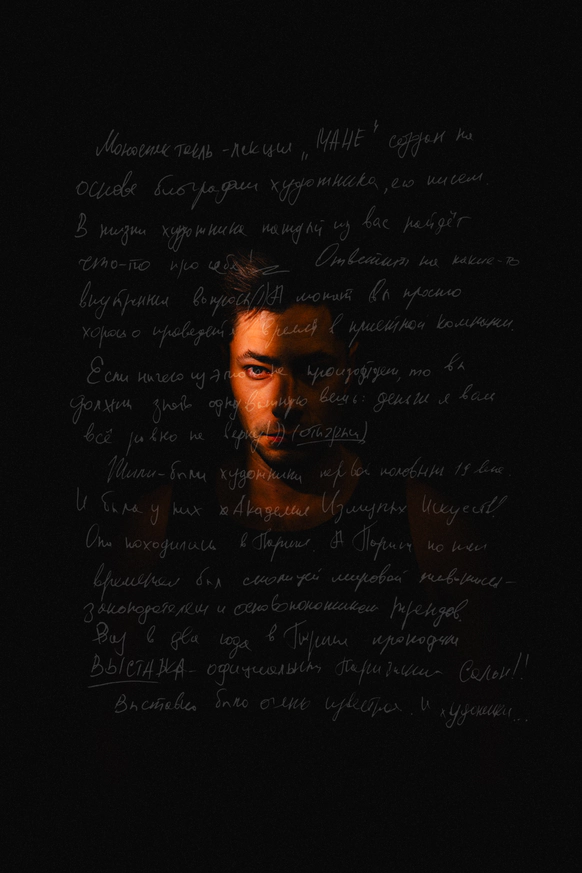 Моноспектакль-лекция „МАНЕ" создан на
основе биографии художника, его писем.
В жизни художника каждый из вас найдёт
что-то про себя Ответит на какие-то
внутренние вопросы А может вы просто
хорошо проведёте время в приятной компании.
Если ничего из этого не произойдет, то вы
должны знать одну важную вещь: деньги я вам
всё равно не верну)) (отбивка)
Жили-были художники первой половины 19 века.
И была у них Академия Изящных Искусств!
Она находилась в Париже. А Париж по тем
временам был столицей мировой живописи-
законодателем и основоположником трендов.
Раз в два года в Париже проходила
ВЫСТАВКА - официальный Парижский Салон!!
Выставка была очень известна. И художники...